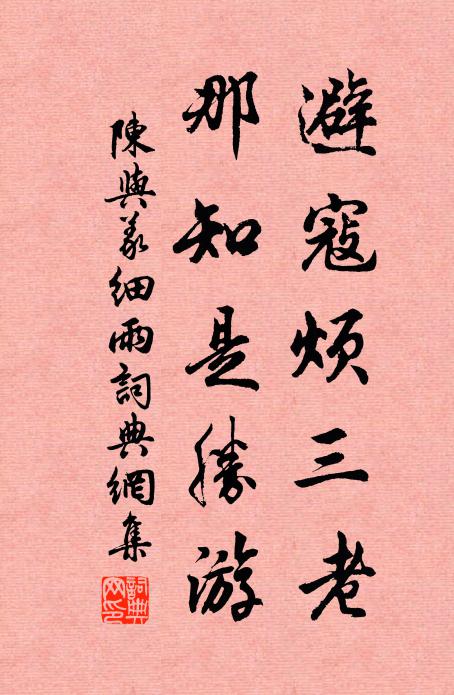 避寇烦三老
那知是勝游
陳與義細雨詞典網集
詞典網印